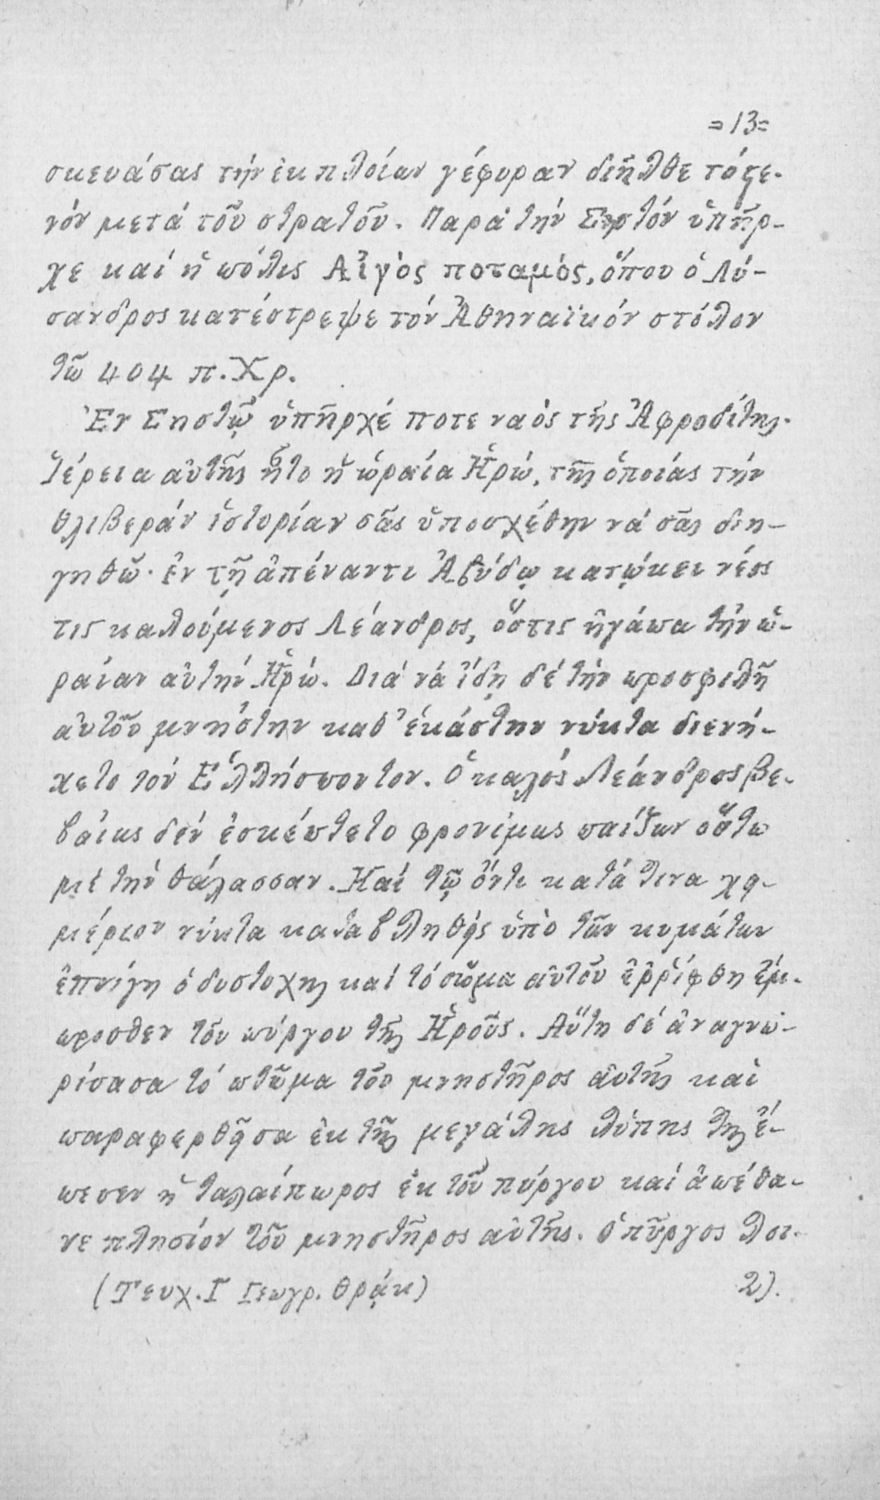 =13=
σκευάσας τήν ἐκ πλοίων γέφυραν διῆλθε τό στε-
νόν μετά τοῦ στρατοῦ. Παρά τήν Σηστόν ὑπῆρ-
χε καί ἡ πόλις Αἰγὸς ποταμὸς, ὅπου ὁ Λύ-
σανδρος κατέστρεψε τόν Ἀθηναϊκόν στόλον
τῶ 404 π.Χρ.
Ἐν Σηστῷ ὑπῆρχέ ποτε ναός τῆς Ἀφροδίτης.
Ἱέρεια αὐτῆς ἦτο ἡ ὡραία Ἡρώ, τῆς ὁποίας τήν
θλιβεράν ἱστορίαν σᾶς ὑποσχέθην νά σᾶς διη-
γηθῶ· ἐν τῇ ἀπέναντι Ἀβύδῳ κατῴκει νέος
τις καλούμενος Λέανδρος, ὅστις ἠγάπα τήν ὡ-
ραίαν αὐτήν Ἡρώ. Διά νά ἴδῃ δέ τήν προσφιλῆ
αὐτοῦ μνηστήν καθ᾽ ἑκάστην νύκτα διενή-
χετο τόν Ἑλλήσποντον. Ὁ καλός Λέανδρος βε-
βαίως δέν ἐσκέπτετο φρονίμως παίζων οὕτω
μέ τήν θάλασσαν. Καί τῷ ὄντι κατά τινα χει-
μέριον νύκτα καταβληθείς ὑπό τῶν κυμάτων
ἐπνίγη ὁ δυστυχής καί τό σῶμα αὐτοῦ ἐῤῥίφθη ἔμ-
προσθεν τοῦ πύργου τῆς Ἡροῦς. Αὕτη δέ ἀναγνω-
ρίσασα τό πτῶμα τοῦ μνηστῆρος αὐτῆς καί
παραφερθεῖσα ἐκ τῆς μεγάλης λύπης της ἔ-
πεσεν ἡ ταλαίπωρος ἐκ τοῦ πύργου καί ἀπέθα-
νε πλησίον τοῦ μνηστῆρος αὐτῆς. Ὁ πῦργος λοι-
(Τευχ. Γ Γεωγρ. Θρᾴκ) 2).